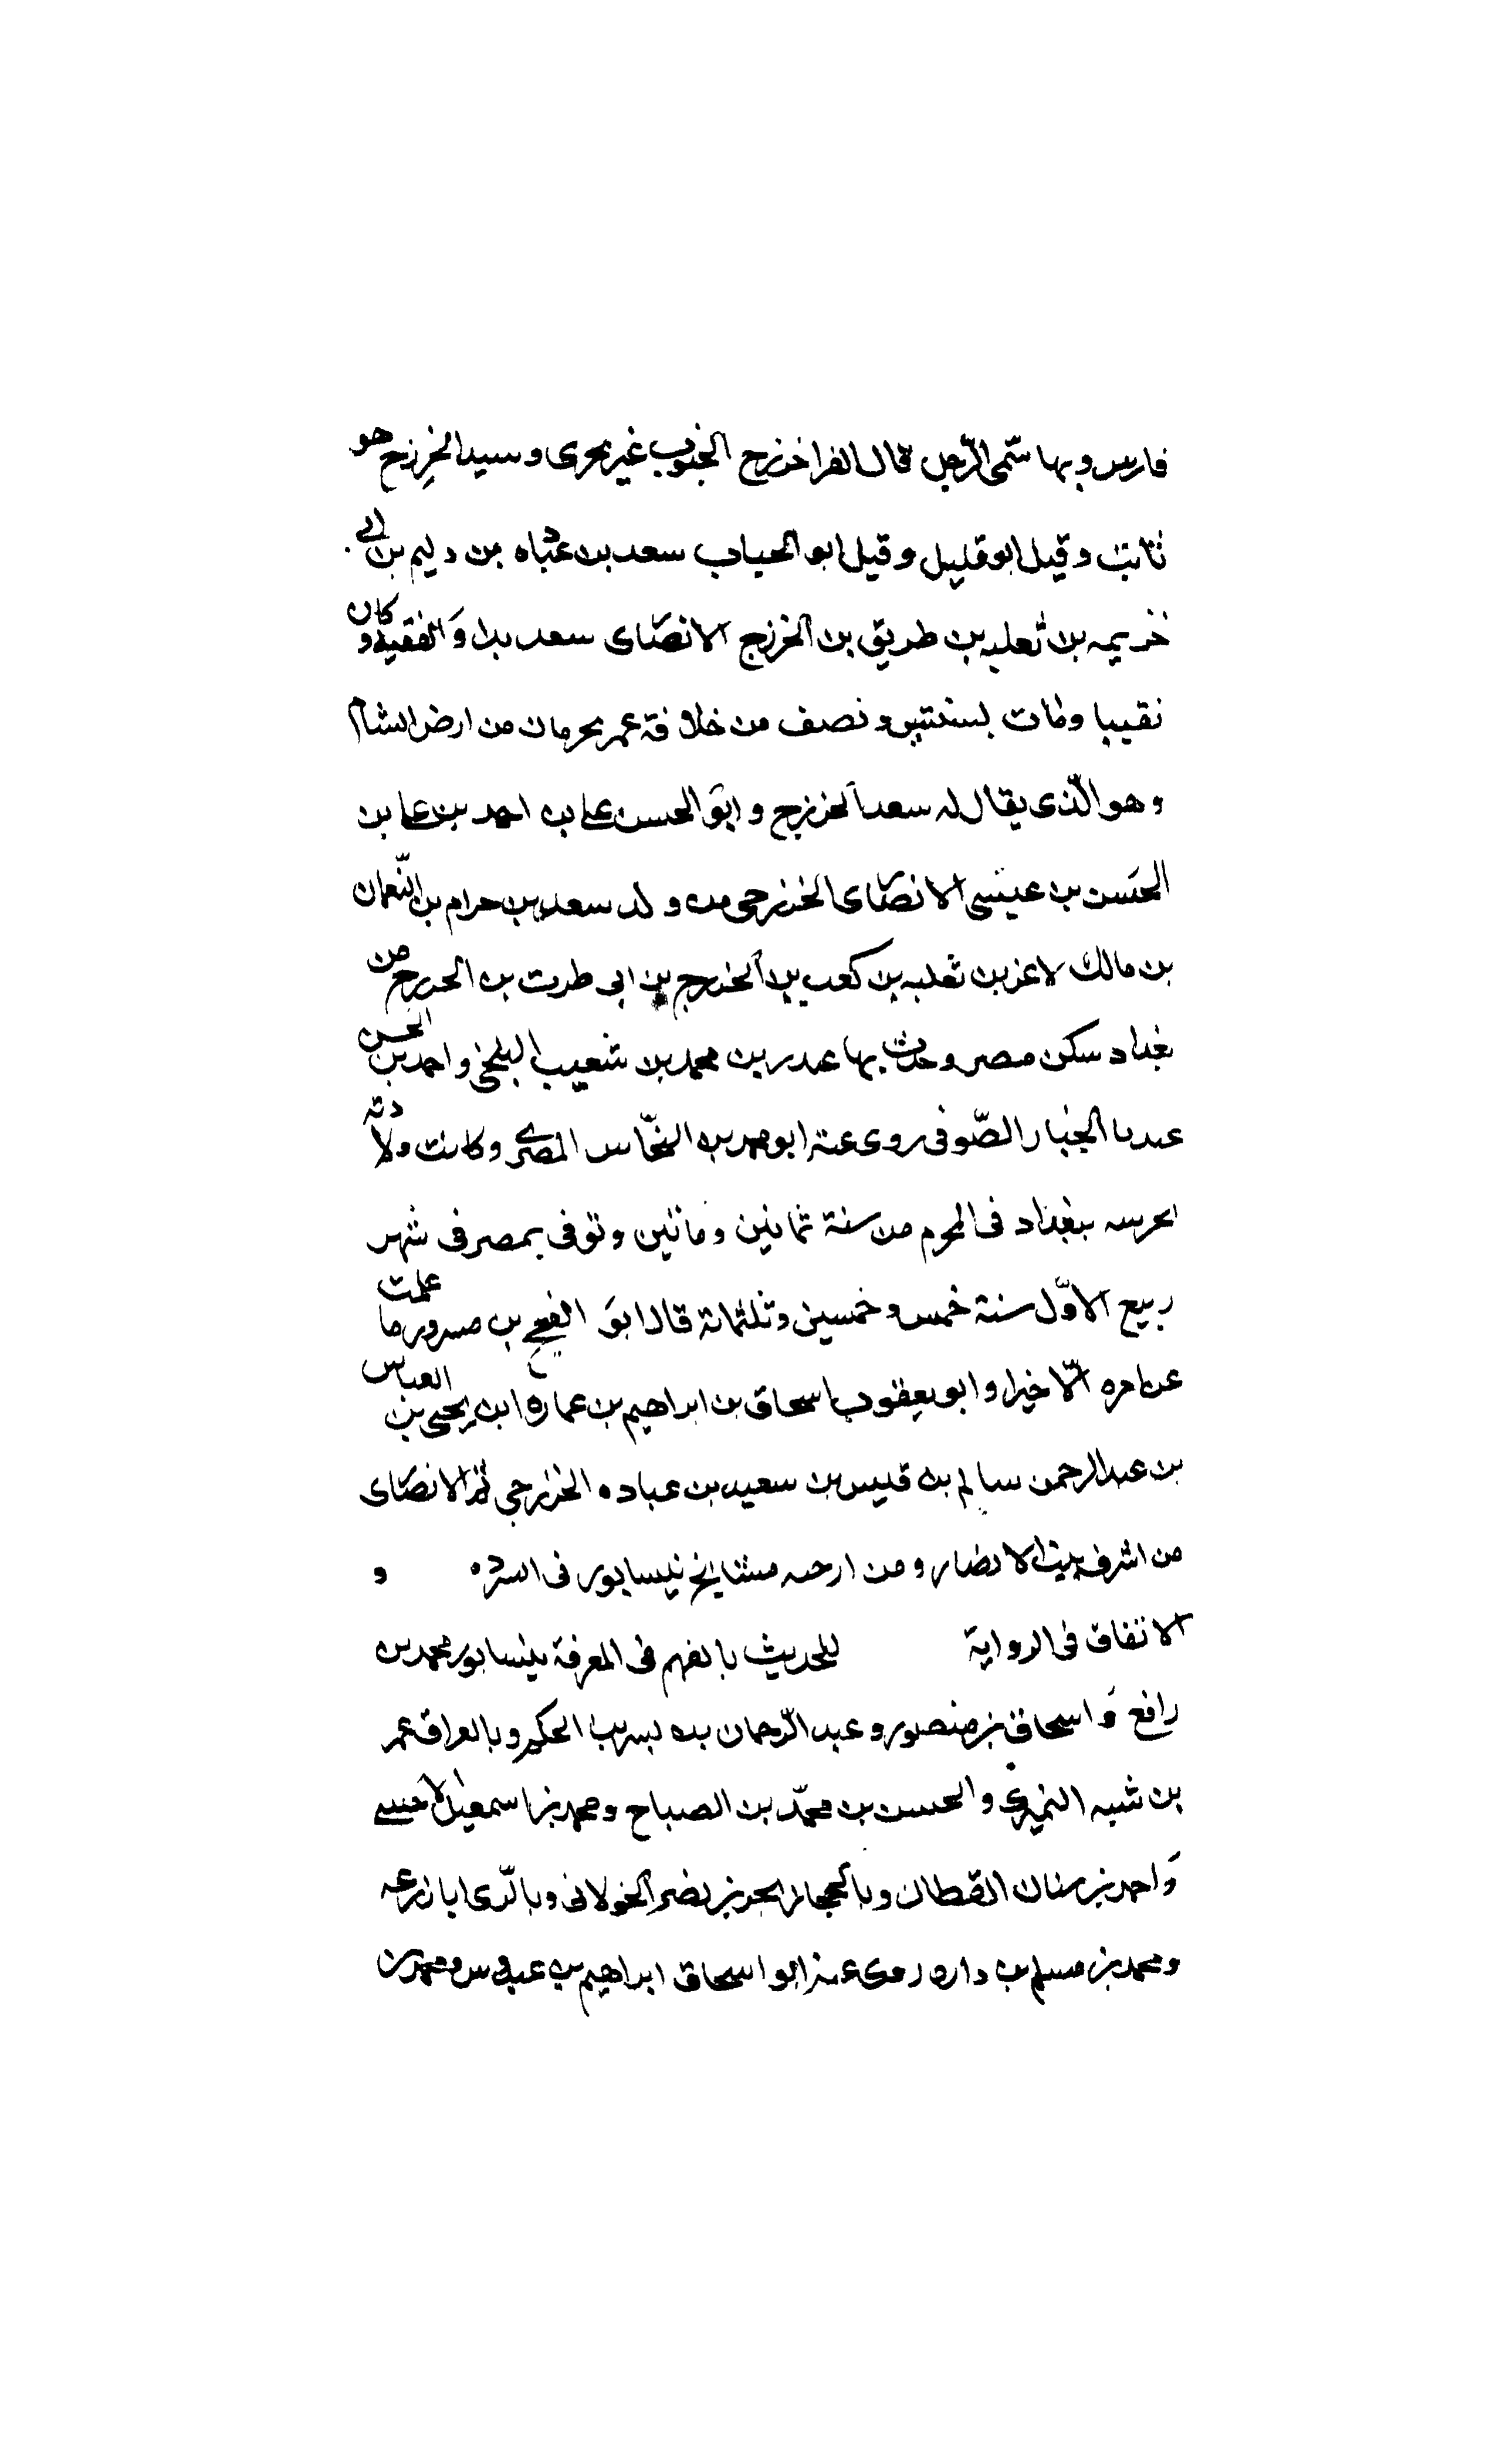 فارس وبها سمّى الرّجل قال الفرا خزرج الجنوب غير مجرى وسيد الخزرج هو
ثابت وقيل ابو قليل وقيل ابو الحباب سعد بن عباده بن دليم بن ابى
خزيمه بن ثعلبه بن طريق بن الخزرج الانصارى سعد بدا و العقبه وكان
نقيبا ومات لسنتين ونصف من خلافة عمر بحرمان من ارض الشام
وهو الّذى يقال له سعد الخزرج وابو الحسن على بن احمد بن على بن
الحسن بن عيسى الانصارى الخزرجى من ولد سعد بن حرام بن النّعمان
بن مالك لاغر بن ثعلبه بن كعب بن الخزرج بن ابى طرت بن الخزرج من
بغداد سكن مصر وحدث بها عن محمد بن شعيب البلخى واحمد بن الحسن
عبد الجبار الصّوفى روى عنه ابو محمد بن النحّاس المصرى وكانت ولادته
ببغداد فى المحرم من سنة ثمانين ومائتين وتوفى بمصر فى شهر
ربيع الاوّل سنة خمس وخمسين وثلثمائة قال ابو الفتح بن مسرور ما علمت
من امره الّا خيرا وابو يعقوب اسحاق بن ابراهيم بن عماره ابن يحيى بن العباس
بن عبد الرحمن سالم بن قيس بن سعيد بن عباده الخزرجى ثم الانصارى
من اشرف بيت الانصار ومن مشايخ نيسابور فى و
الاتفاق فى الرواية للحديث بالفهم فى المعرفة بنيسابور محمد بن
رافع و اسحاق بن منصور وعبد الرّحمان بن بشر بن الحكم وبالعراق عمر
بن شبه النميرى والحسن بن محمّد بن الصباح ومحمد بن اسمعيل الاحمسى
واحمد بن سنان القطان وبالحجاز بحر بن نصر الخولانى وبالرّى ابا زرعه
ومحمد بن مسلم بن داره روى عنه ابو اسحاق ابراهيم بن عبدوس ومحمد بن